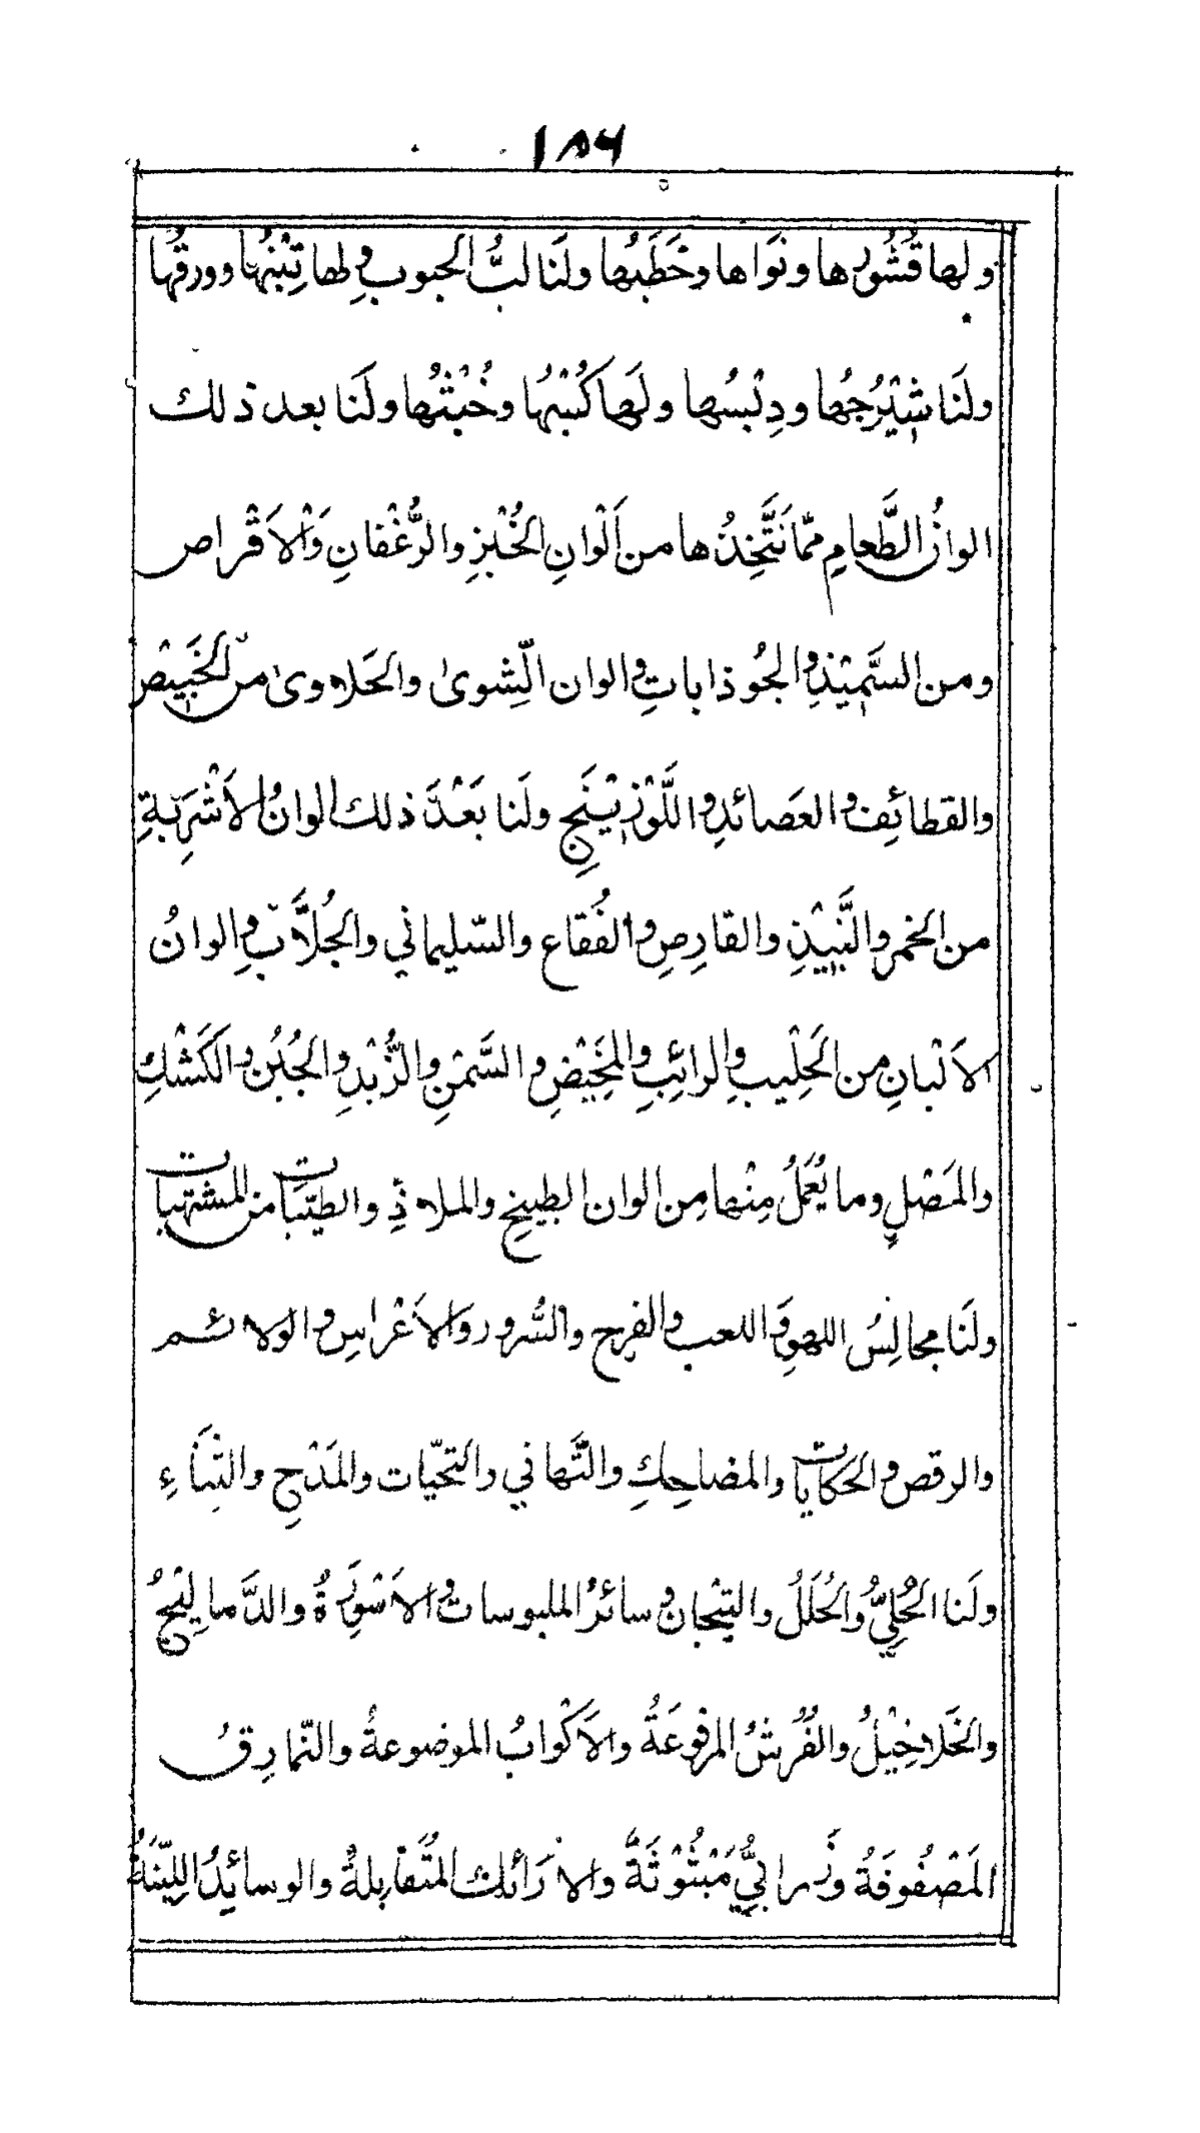 ١٨٦
ولها قُشُورها ونَوَاها وخَطَبُها ولَنَا لبُّ الحبوب ولها تِبْنُها وورقُها
ولَنَا شِيْرُجُها ودِبْسُها ولَها كُسْبُها وخُبْثُها ولَنَا بعد ذلك
الوانُ الطَّعامِ ممّا نَتَّخِذُها من اَلْوانِ الخُبْزِ والرُّغْفانِ وَالْاَقْراص
ومن السَّمِيْذِ والجُوذاباتِ والوان الشِّوىٰ والحَلاوىٰ من الخَبِيْصِ
والقطائِف والعَصائدِ واللَّوْزِيْنَجِ ولَنا بَعْدَ ذلك الوانُ الاَشْرِبَةِ
من الخمر والنَّبِيْذِ والقارِصِ والفُقاع والسّليماني والجُلاَّبِ والوانُ
الاَلْبانِ من الحَلِيبِ والرائِبِ والمَخِيْضِ والسَّمْنِ والزُّبْدِ والجُبُنِ والكَشْكِ
والمَصْلِ وما يُعْمَلُ مِنْها مِن الوان الطبيخِ والملاذِّ والطيّبات من المشتهيات
ولَنَا مجالِسُ اللهوِ واللعب والفرح والسُّرور والاَعْراسِ والولائم
والرقص والحكايات والمضاحِكِ والتَّهاني والتحيّات والمَدْحِ والثَّناءِ
ولَنا الحُلِيُّ والحُلَلُ والتِيْجان وسائرُ الملبوسات والاَسْوِرَةُ والدَّمالِيْجُ
والخَلاخِيْلُ والفُرُشُ المرفوعَةُ والاَكْوابُ الموضوعةُ والنّمارِقُ
المَصْفُوفَةُ وزَرابيُّ مَبْثُوْثَةٌ والارَائك المُتَقابِلةُ والوسائِدُ اللَّيِّنَةُ